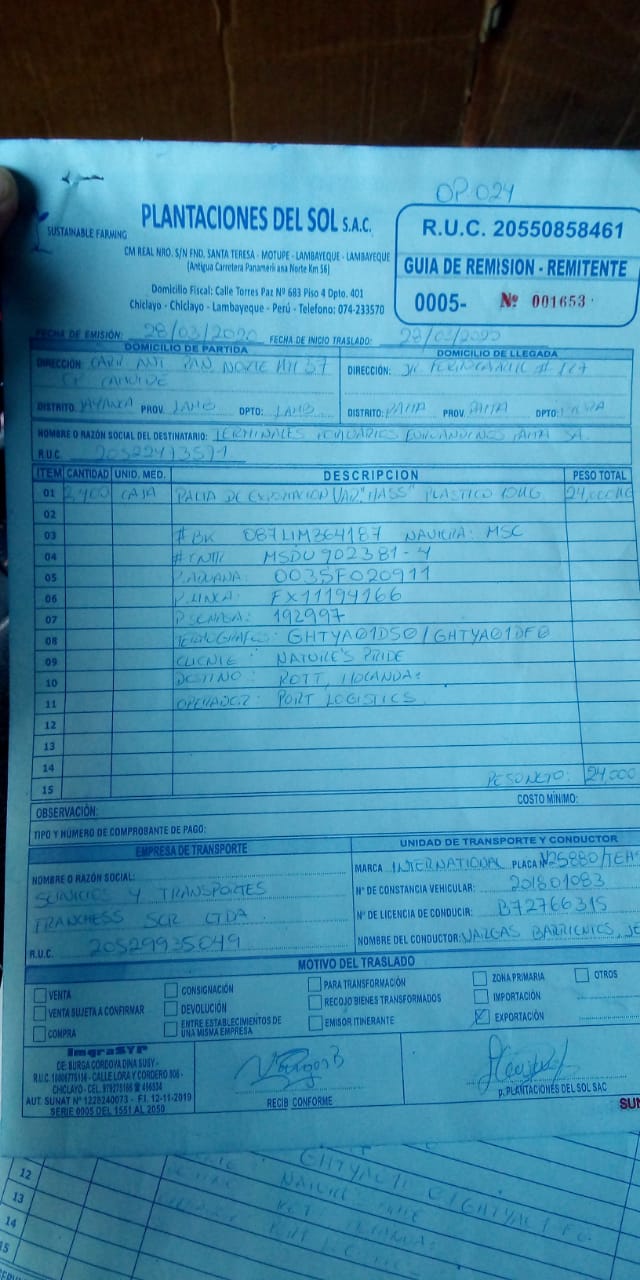 OP-024
SUSTAINABLE FARMING
PLANTACIONES DEL SOL S.A.C.
CM REAL NRO. S/N FND. SANTA TERESA - MOTUPE - LAMBAYEQUE - LAMBAYEQUE
(Antigua Carretera Panamericana Norte Km 56)
Domicilio Fiscal: Calle Torres Paz Nº 683 Piso 4 Dpto. 401
Chiclayo - Chiclayo - Lambayeque - Perú - Telefono: 074-233570
R.U.C. 20550858461
GUIA DE REMISION - REMITENTE
0005- Nº 001653
FECHA DE EMISIÓN: 28/03/2020 FECHA DE INICIO TRASLADO: 28/03/2020
DOMICILIO DE PARTIDA
DIRECCIÓN CARR. ANT PAN NORTE KM 37
DISTRITO. JAYANCA PROV. LAMB DPTO: LAMB
DOMICILIO DE LLEGADA
DIRECCIÓN: JR.
DISTRITO: PAITA PROV. PAITA DPTO: PIURA
NOMBRE O RAZÓN SOCIAL DEL DESTINATARIO: TERMINALES PORTUARIOS EUROANDINOS PAITA SA
R.U.C. 20522473571
ITEM CANTIDAD UNID. MED. DESCRIPCION PESO TOTAL
01 2,400 CAJA PALTA DE EXPORTACION VAR. "HASS" PLASTICO 10KG 24,000KG
02
03 # BK 087LIM364187 NAVIERA: MSC
04 # CNTR MSDU 902381-4
05 P. ADUANA: 0035F020911
06 P. LINEA: FX11194166
07 P. SENASA: 192997
08 TERMOGRAFO: GHTYA01DS0 / GHTYA01DF0
09 CLIENTE: NATURE'S PRIDE
10 DESTINO: ROTT, HOLANDA
11 OPERADOR: PORT LOGISTICS
12
13
14
15 PESO NETO: 24,000
OBSERVACIÓN:
COSTO MÍNIMO:
TIPO Y NÚMERO DE COMPROBANTE DE PAGO:
EMPRESA DE TRANSPORTE
NOMBRE O RAZÓN SOCIAL:
SERVICIOS Y TRANSPORTES
TRANCHESS SCR LTDA
R.U.C. 20529935049
UNIDAD DE TRANSPORTE Y CONDUCTOR
MARCA INTERNATIONAL PLACA Nº
N° DE CONSTANCIA VEHICULAR: 201801083
N° DE LICENCIA DE CONDUCIR: B72766315
NOMBRE DEL CONDUCTOR: VARGAS BARRIENTOS, JE
MOTIVO DEL TRASLADO
VENTA
VENTA SUJETA A CONFIRMAR
COMPRA
CONSIGNACIÓN
DEVOLUCIÓN
ENTRE ESTABLECIMIENTOS DE
UNA MISMA EMPRESA
PARA TRANSFORMACIÓN
RECOJO BIENES TRANSFORMADOS
EMISOR ITINERANTE
ZONA PRIMARIA
IMPORTACIÓN
EXPORTACIÓN
OTROS
ImgraSYP
DE: BURGA CORDOVA DINA SUSY -
CALLE LORA Y CORDERO
AUT. SUNAT Nº 1228240073 - F.I. 12-11-2019
SERIE 0005 DEL 1551 AL 2050
RECIB CONFORME
p. PLANTACIONES DEL SOL SAC
SUN
12
13
14
15